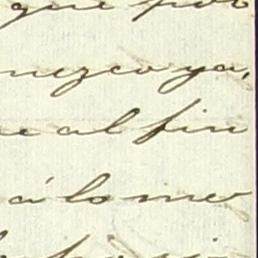 que por
nezco ya,
e al fin
á lo me